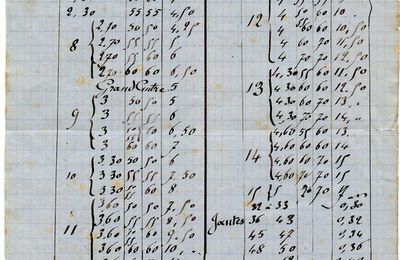 2,30 55 55 4,50
8
2,70 50 50 4,25
2,70 55 50 5
2,70 55 60 6
2,70 60 60 6,50
Grand Centre 5
9
3 50 50 5
3 55 55 6
3 55 60 6,50
3 60 60 7
10
3,30 50 50 6
3 30 55 55 7
3 30 55 60 8
11
3,60 50 50 7,50
3,60 55 55 8,50
3,60 55 60 9
3,60 60 60 10
12
4 55 60 10,50
4 60 70 11,50
4 70 70 12,50
13
4,30 55 60 11,50
4,30 60 60 12,50
4,30 60 70 13
4,30 70 70 14
14
4,60 55 60 13
4,60 60 60 14
4,60 60 70 15
4,60 70 70 15
15
5 70 70
Jantes
32 33 0,30
36 43 0,32
45 42 0,34
48 50 0,36